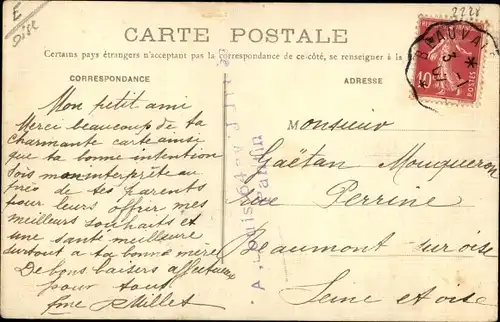 E
Oise
2228
CARTE POSTALE
Certains pays étrangers n'acceptant pas la correspondance de ce côté, se renseigner à la
CORRESPONDANCE
ADRESSE
BEAUVAIS
10
POSTES
Mon petit ami
Merci beaucoup de ta
charmante carte ainsi
que ta bonne intention
sois mon interprète au
près de tes parents
pour leurs offrir mes
meilleurs souhaits et
une santé meilleure
surtout a ta bonne mère
De bons baisers affectueux
pour tous
Millet
Monsieur
Gaëtan
Rue Perrine
Beaumont sur oise
Seine et oise